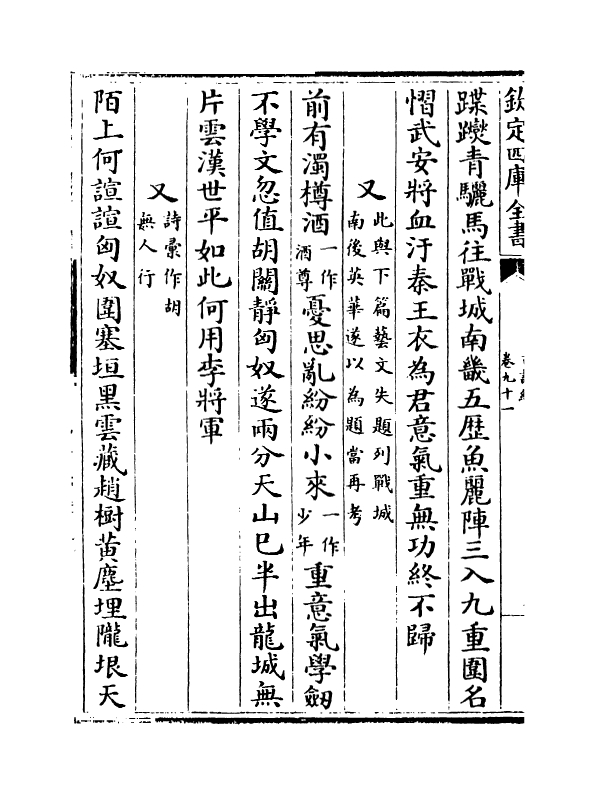 欽定四庫全書
卷九十一
蹀躞青驪馬往戰城南畿五歷魚麗陣三入九重圍名
慴武安將血汙秦王衣為君意氣重無功終不歸
又此與下篇藝文失題列戰城南後英華遂以為題當再考
前有濁樽酒一作酒尊憂思亂紛紛小來一作少年重意氣學劔
不學文忽值胡關靜匈奴遂兩分天山已半出龍城無
片雲漢世平如此何用李將軍
又詩彚作胡無人行
陌上何諠諠匈奴圍塞垣黑雲藏趙樹黄塵埋隴垠天